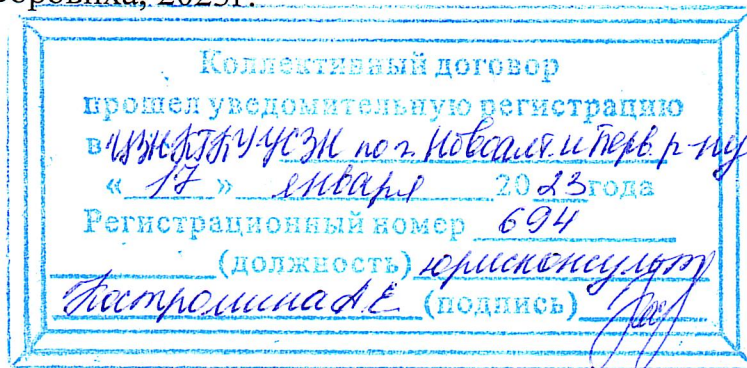 2023г.
Коллективный договор
прошел уведомительную регистрацию
в УСЗН по г. Новоалт. и Перв. р-ну
« 17 » января 2023 года
Регистрационный номер 694
(должность) юрисконсульт
Костромина А.Е. (подпись)